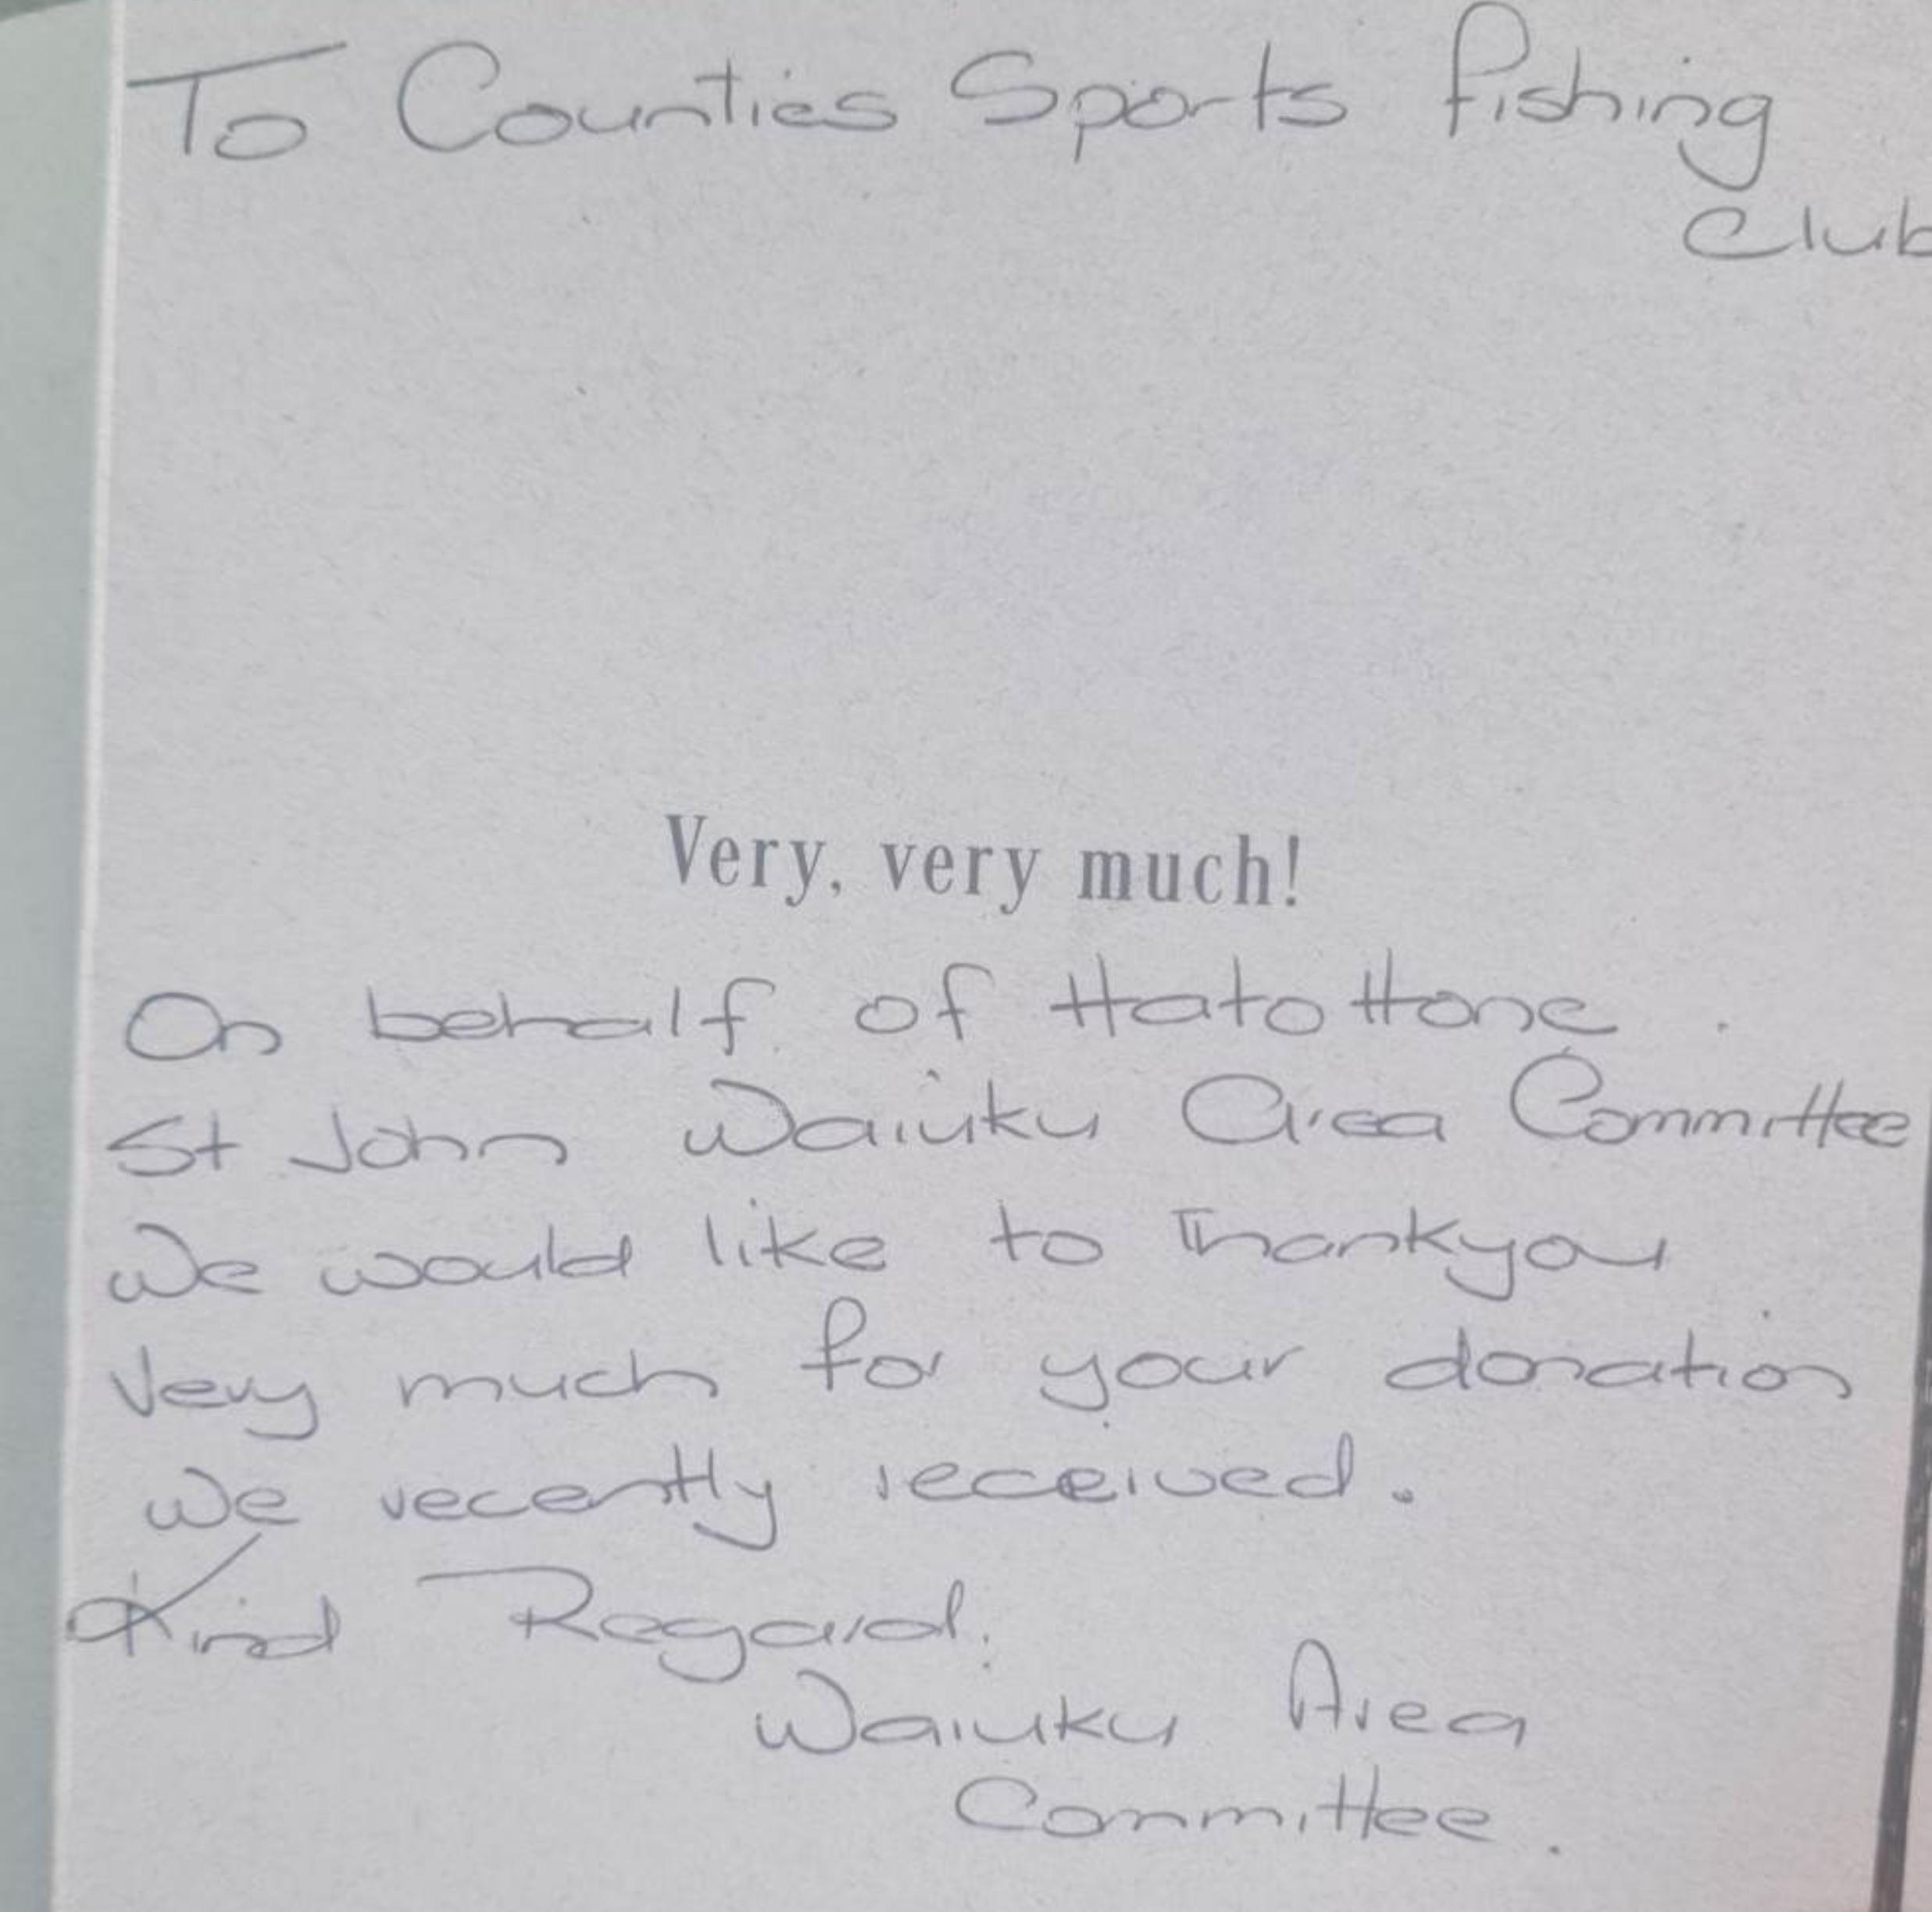 To Counties Sports fishing
Club
Very, very much!
On behalf of Hato Hone
St John Waiuku Area Committee
We would like to Thankyou
Very much for your donation
We recently received.
Kind Regard.
Waiuku Area
Committee.